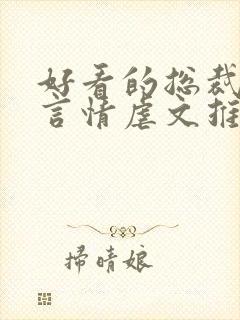 好看的总裁
言情虐文推
掃晴娘